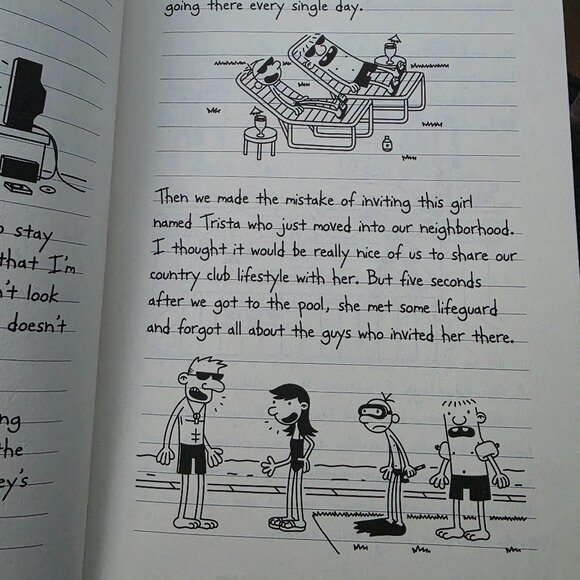 going there every single day.
Then we made the mistake of inviting this girl
named Trista who just moved into our neighborhood.
I thought it would be really nice of us to share our
country club lifestyle with her. But five seconds
after we got to the pool, she met some lifeguard
and forgot all about the guys who invited her there.
stay
that I'm
look
doesn't
the